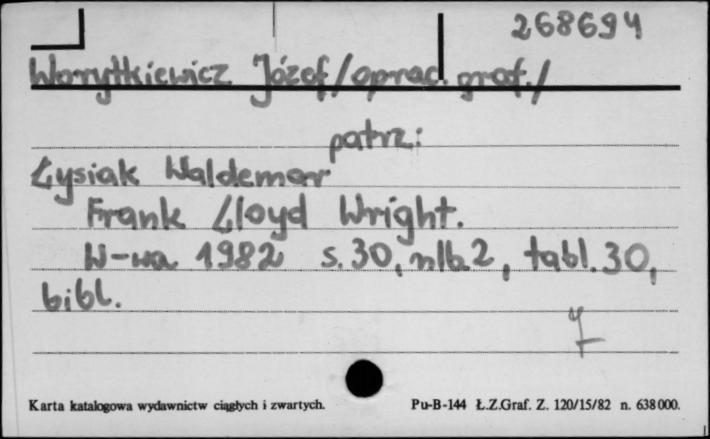 268694
Worytkiewicz Józef /oprac. graf./
patrz:
Łysiak Waldemar
Frank Lloyd Wright.
W-wa 1982 s. 30, nlb. 2, tabl. 30,
bibl.
Karta katalogowa wydawnictw ciągłych i zwartych. Pu-B-144 Ł.Z.Graf. Z. 120/15/82 n. 638 000.